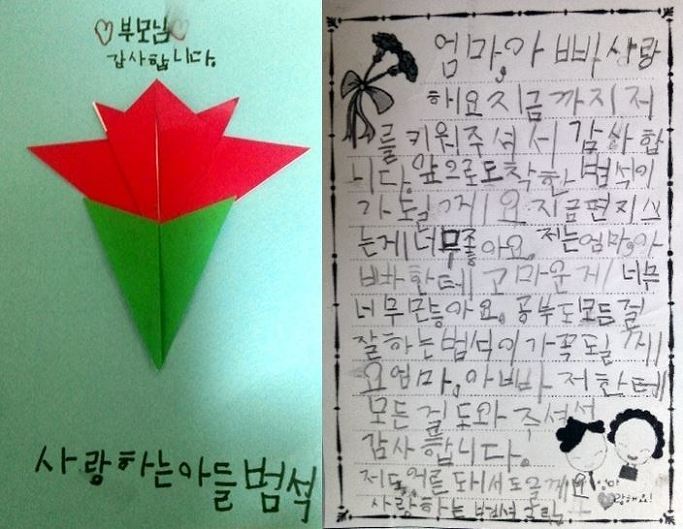 ♡부모님♡
감사합니다.
사랑하는아들범석
엄마,아빠사랑
해요지금까지저
를키워주셔서감싸합
니다.앞으로도착한범석이
가될게요지금편지쓰
는게너무좋아요.저는엄마,아
빠한테고마운게너무
너무모든아요.공부도모든걸
잘하는범석이가꼭될게
요엄마,아빠가저한테
모든걸도와주셔서
감사합니다.
사랑하는범석올림